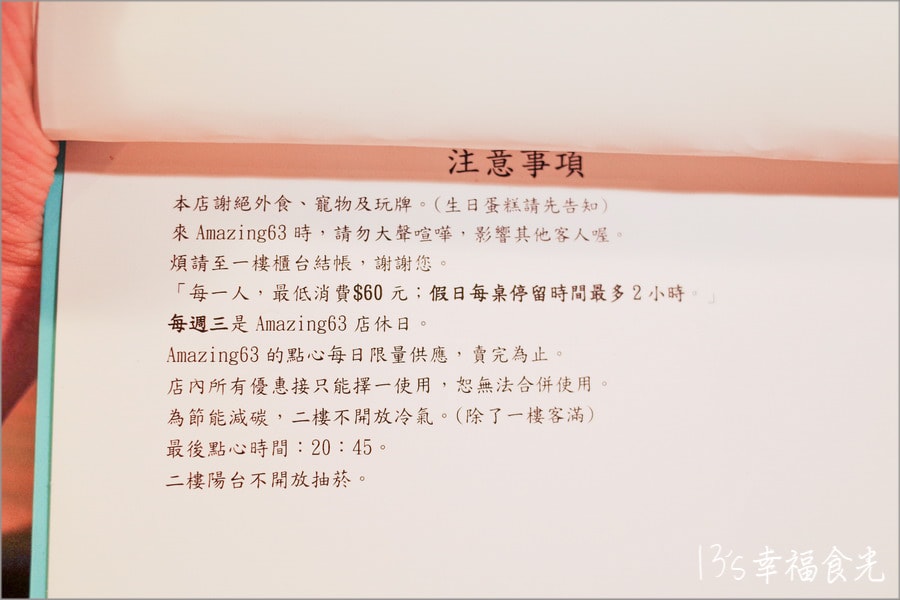 注意事項
本店謝絕外食、寵物及玩牌。(生日蛋糕請先告知)
來 Amazing63 時，請勿大聲喧嘩，影響其他客人喔。
煩請至一樓櫃台結帳，謝謝您。
「每一人，最低消費$60 元；假日每桌停留時間最多 2 小時。」
每週三是 Amazing63 店休日。
Amazing63 的點心每日限量供應，賣完為止。
店內所有優惠接只能擇一使用，恕無法合併使用。
為節能減碳，二樓不開放冷氣。(除了一樓客滿)
最後點心時間：20：45。
二樓陽台不開放抽菸。
13's幸福食光